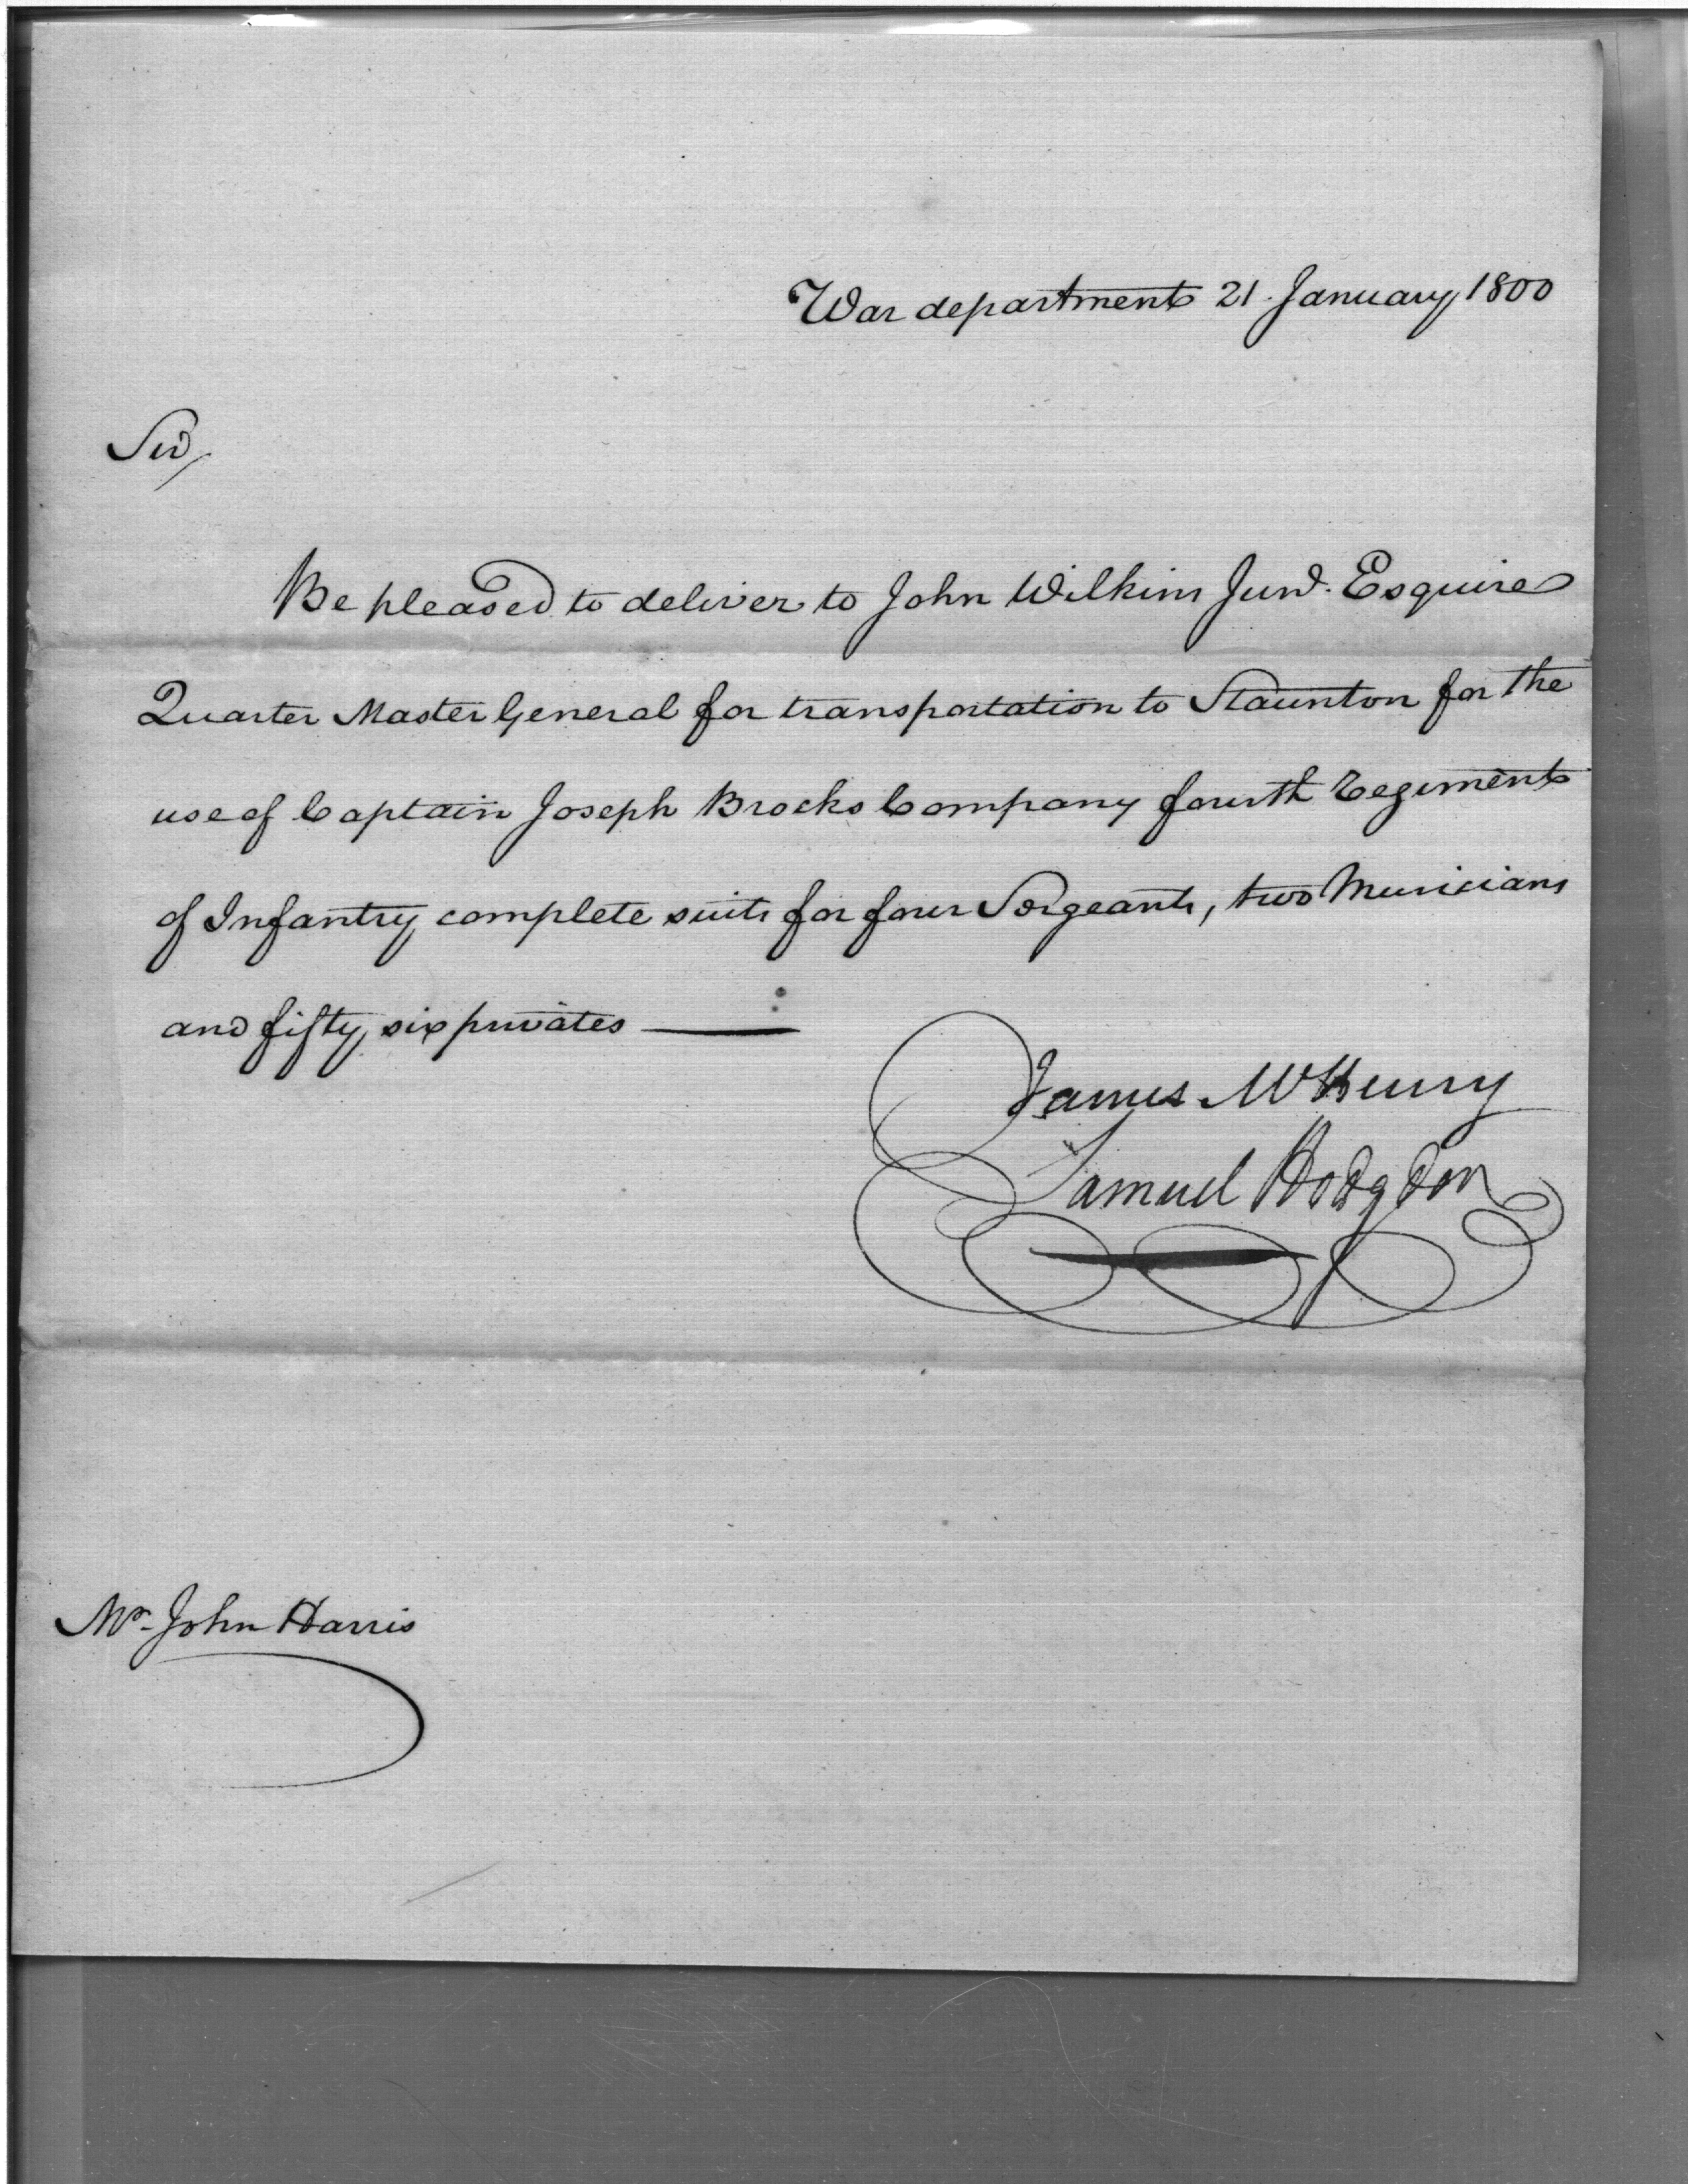 War department 21. January, 1800
Sir,
Be pleased to deliver to John Wilkins Junr. Esquire
Quarter Master General for transportation to Staunton for the
use of Captain Joseph Brocks Company fourth regiment
of Infantry, complete suits for four Sergeants, two Musicians
and fifty six privates
James McHenry
Samuel Hodgdon
Mr. John Harris